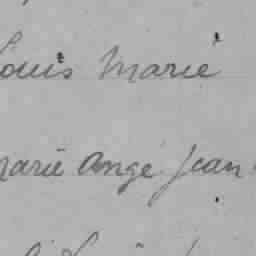 Louis Marie
Marie Ange Jean